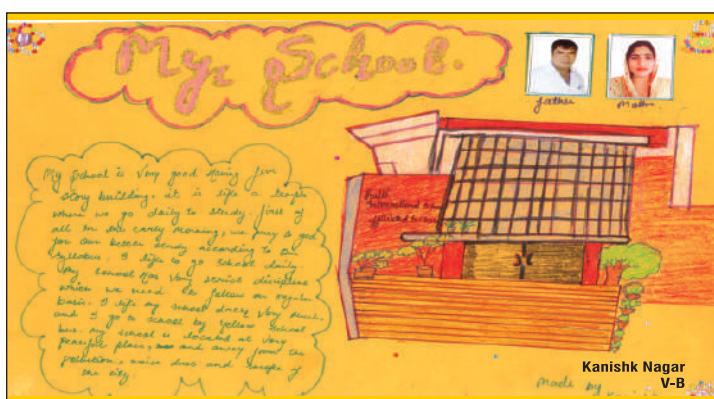 My School.
father
Mother
My School is Very good having five
story building. it is like a temple
where we go daily to study. first of
all in the early morning, we pray to god
for our better study according to the
syllabus. I like to go school daily.
My school has very strict discipline
which we need to follow on regular
basis. I like my school dress very much.
and I go to school by yellow school
bus. my school is located at very
peaceful place, and away from the
pollution, noise dust and smoke of
the city.
International
affiliated to
Kanishk Nagar
V-B
made by